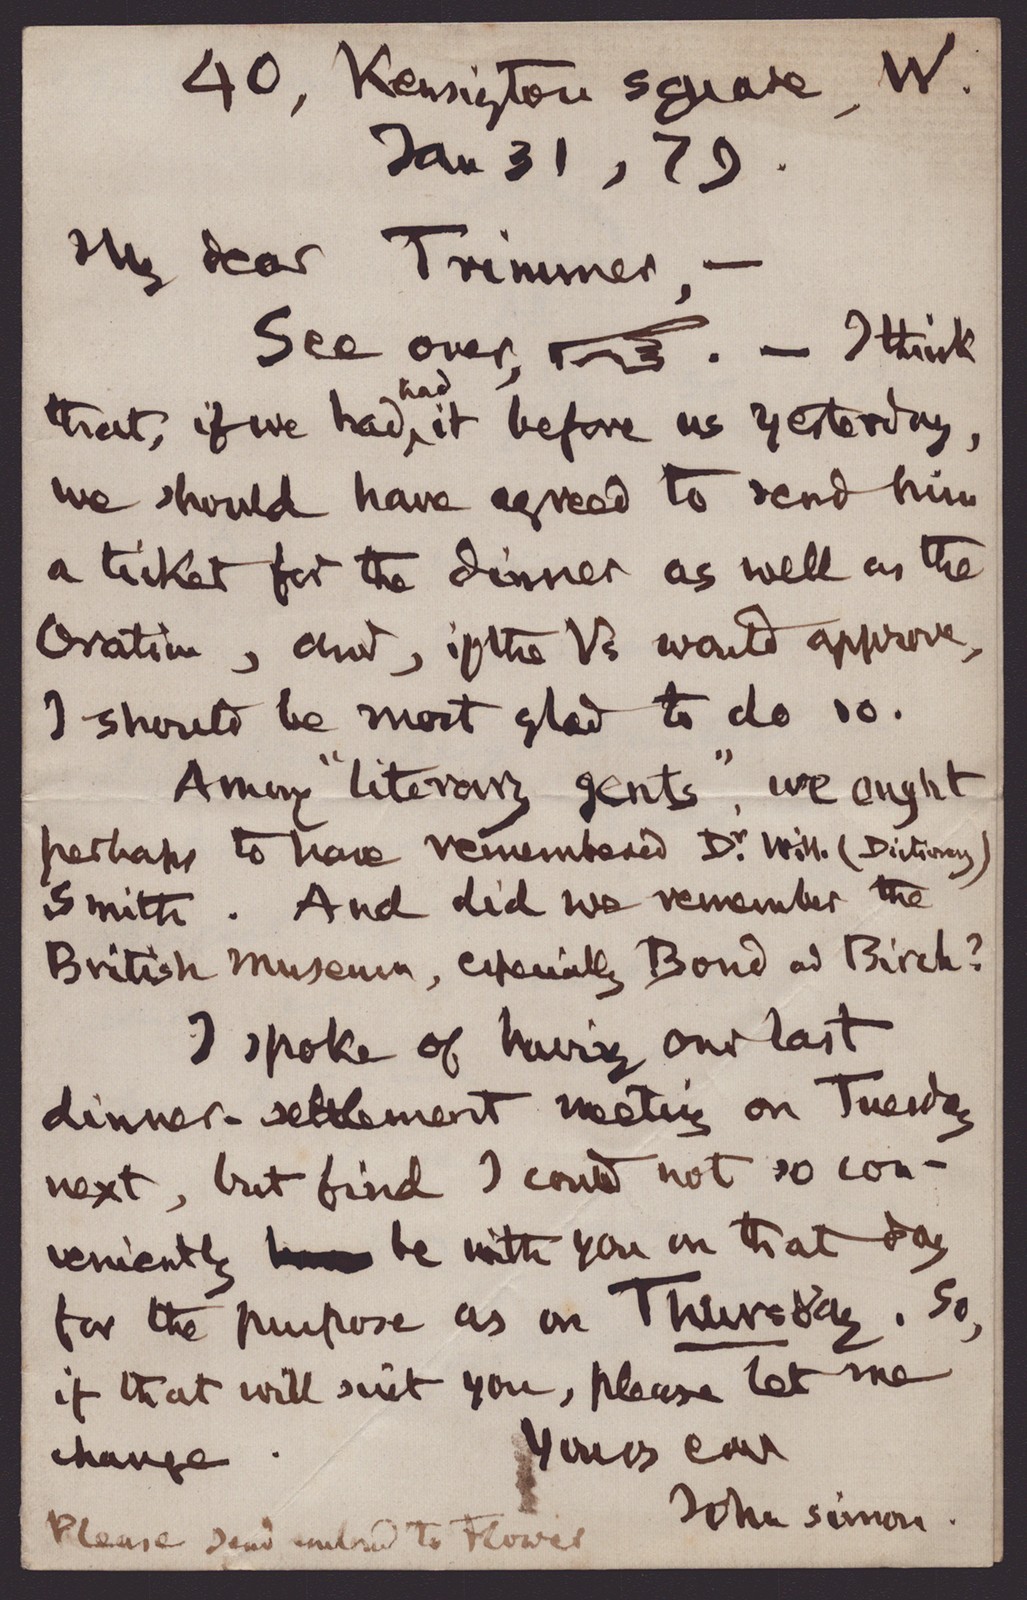 40, Kensington square, W.
Jan 31, 79.
My dear Trimmer, —
See over, ☞. — I think
that, if we had, had it before us yesterday,
we should have agreed to send him
a ticket for the dinner as well as the
Oration, and, if the Vs would approve,
I should be most glad to do so.
Among "literary gents", we ought
perhaps to have remembered Dr. Will. (Dictionary)
Smith. And did we remember the
British Museum, especially Bond and Birch?
I spoke of having our last
dinner-settlement meeting on Tuesday
next, but find I could not so con-
veniently be with you on that day
for the purpose as on Thursday. So,
if that will suit you, please let me
change.
Yours ever
John Simon.
Please send to Flower